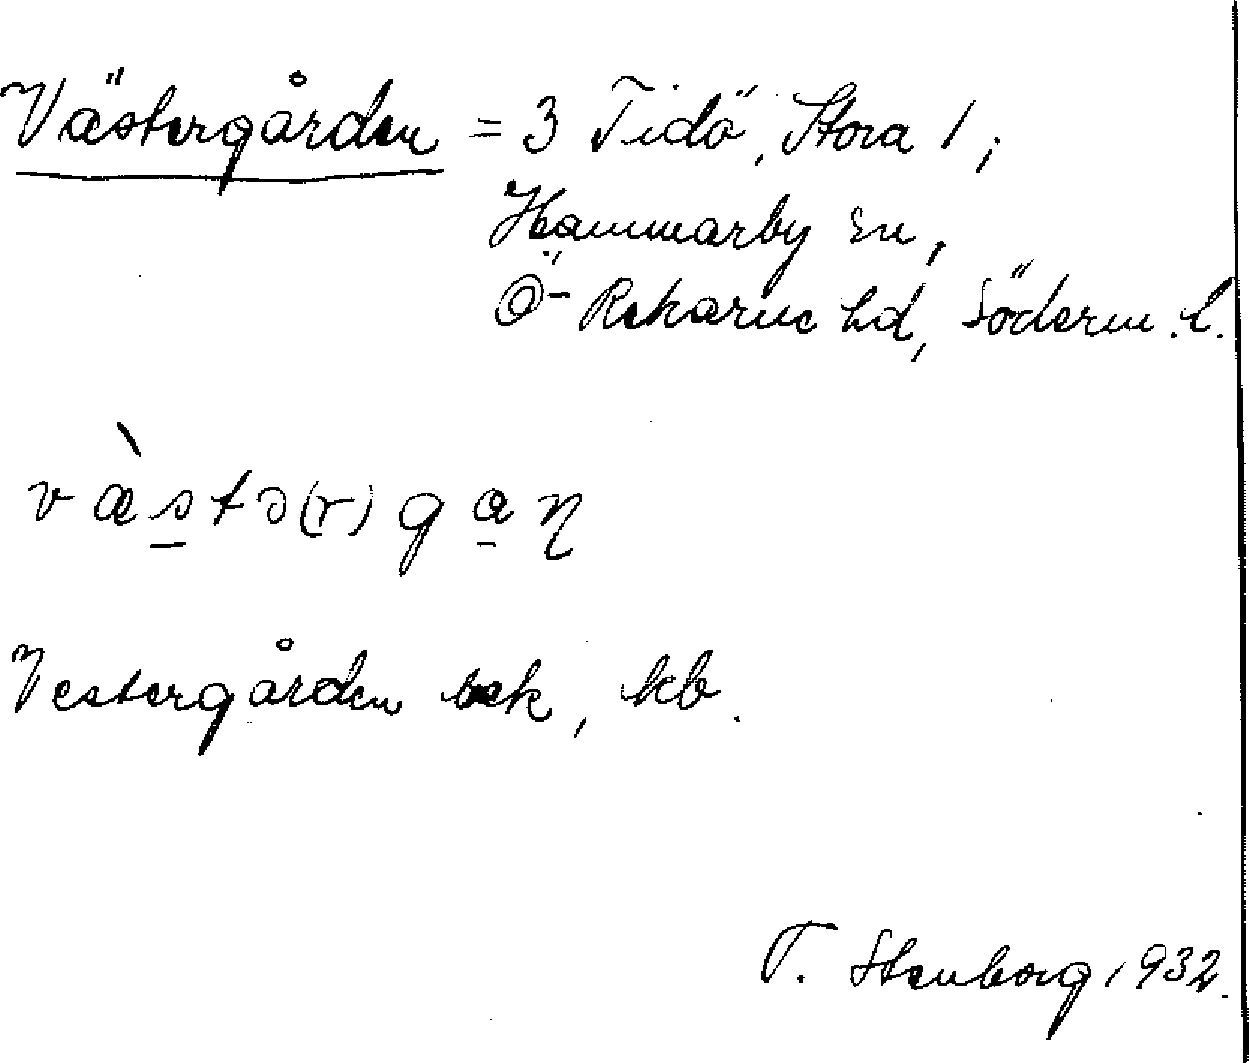 Västergården = 3 Tidö, Stora 1;
Hammarby sn,
Ö-Rekarne hd, Söderm. l.
v à s t ə (r) g a n
Vestergården sek, kb.
T. Stenborg 1932.